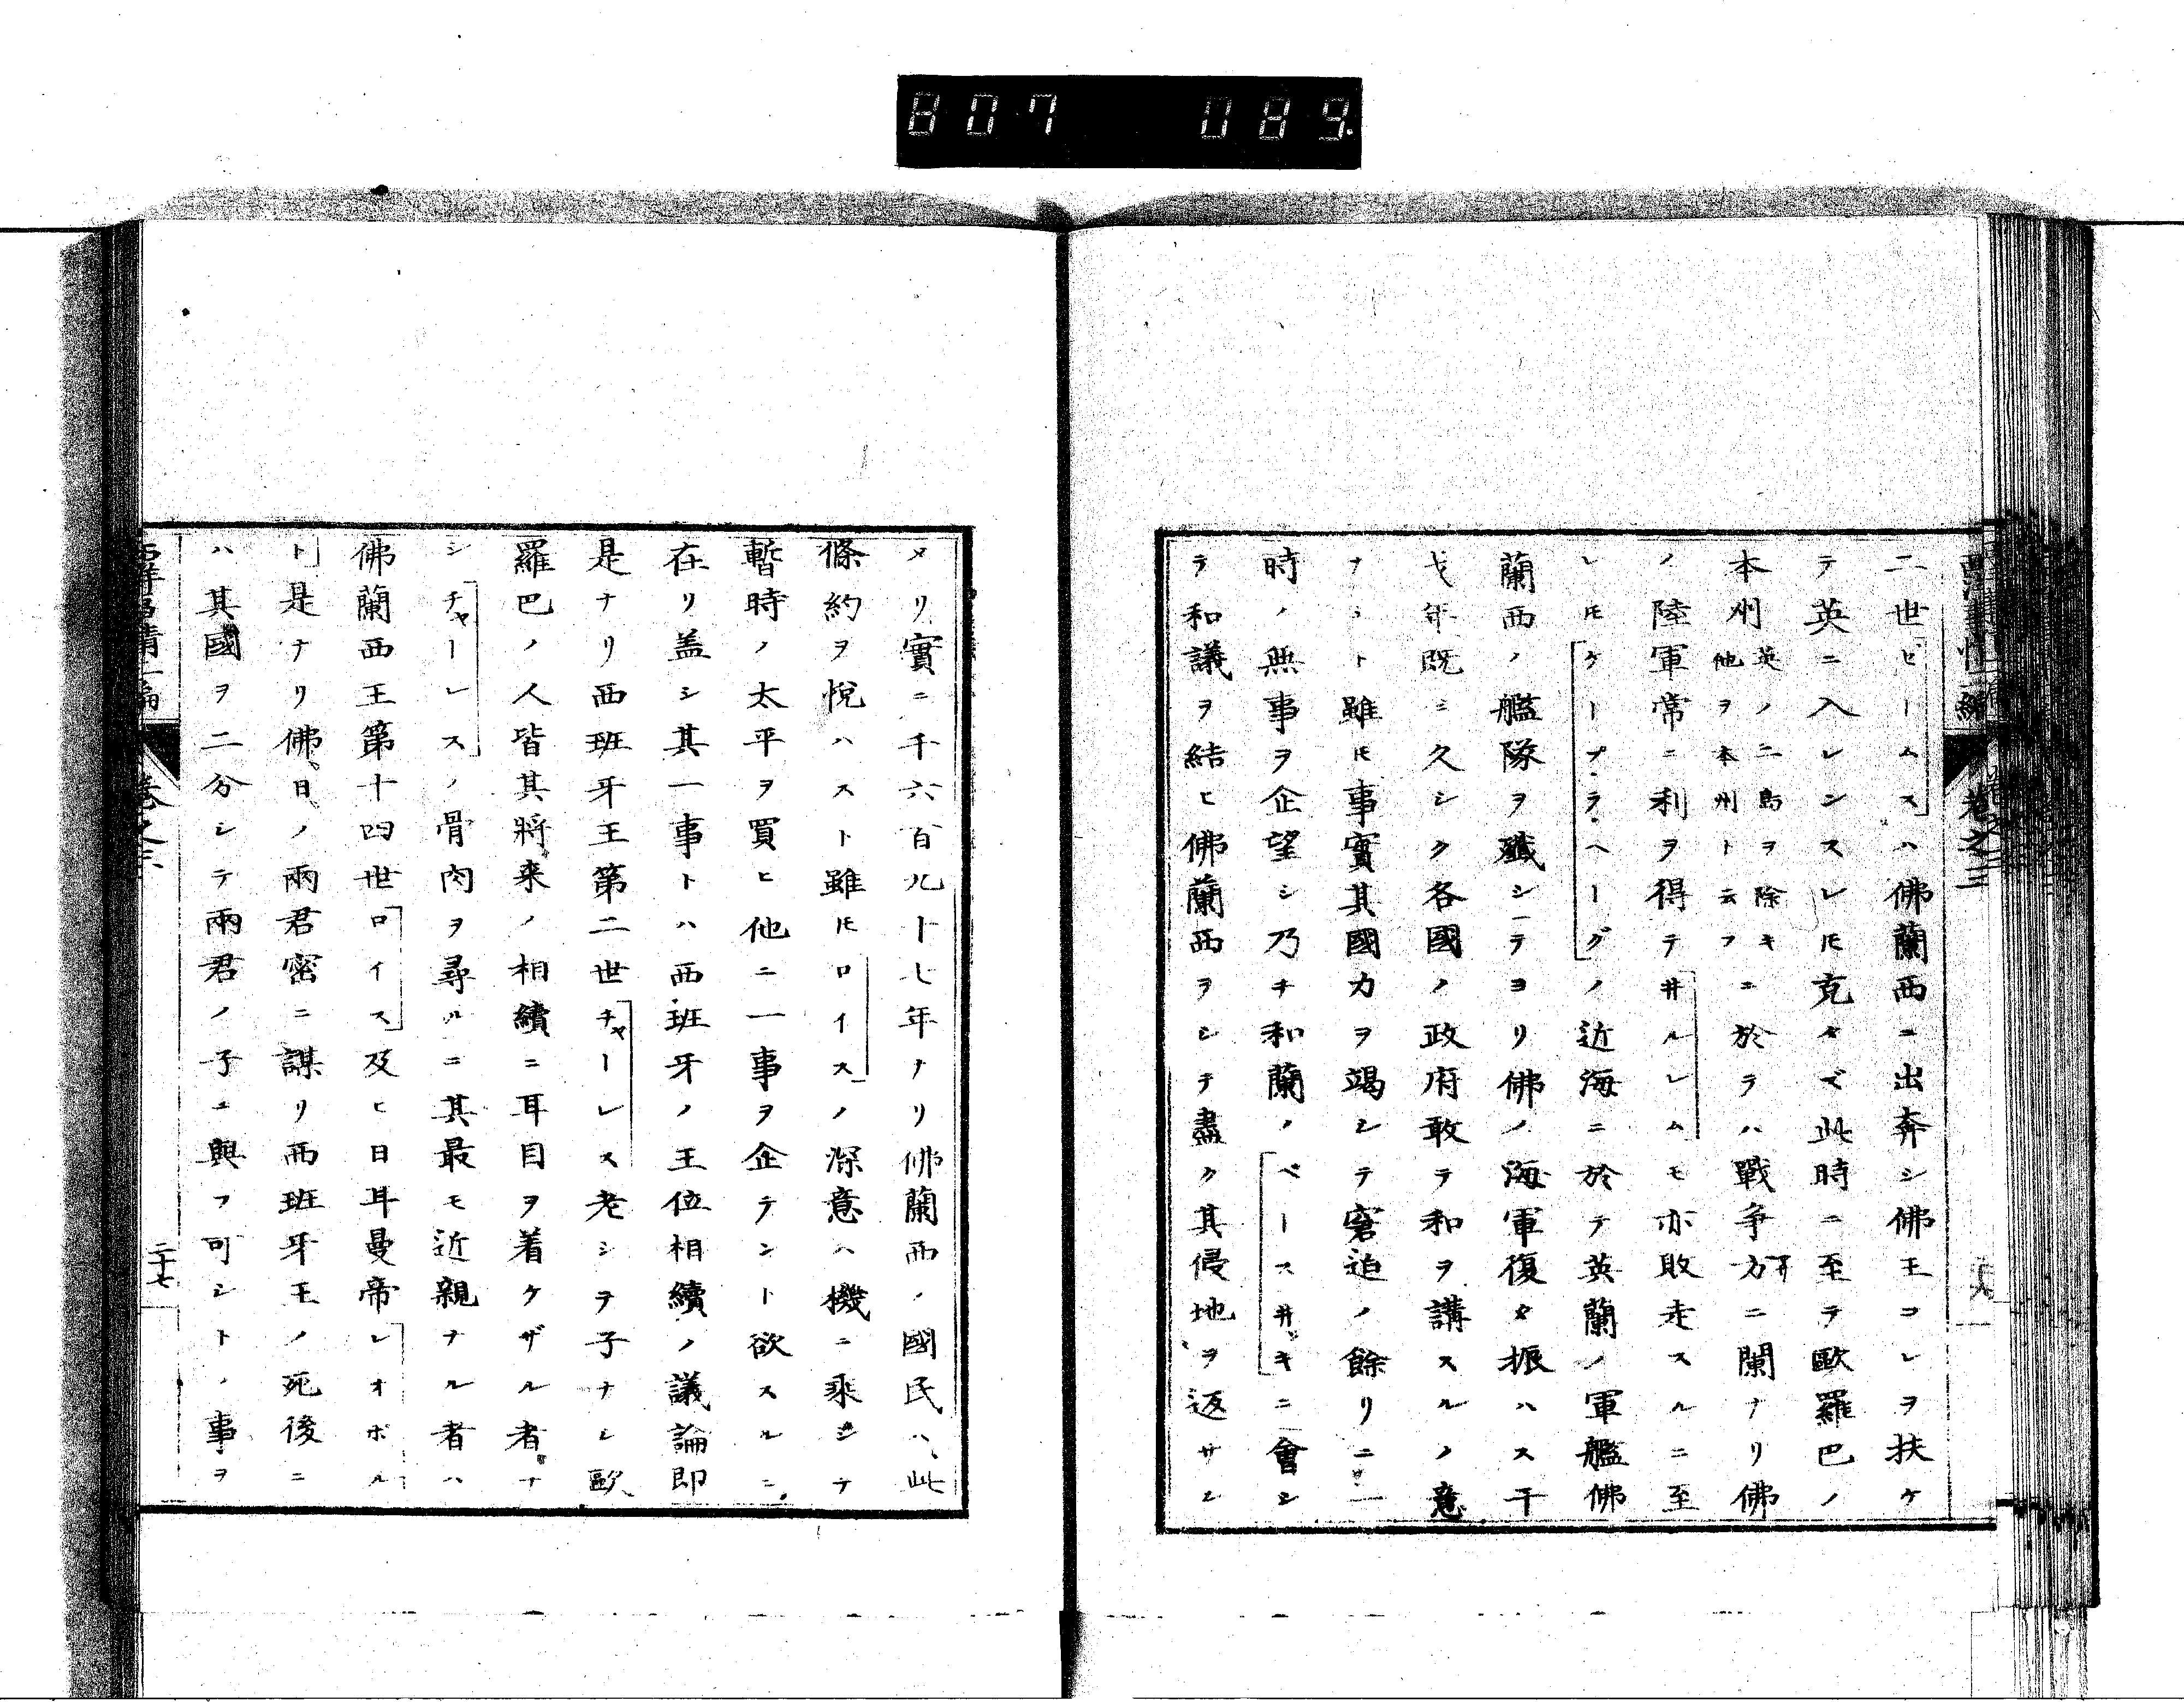 807 089.
西洋事情二編 卷之三
二世ゼームスハ佛蘭西ニ出奔シ佛王コレヲ扶ケ
テ英ニ入レンスレ𪜈克タズ此時ニ至ラ歐羅巴ノ
本州英ノ二島ヲ除キ他ヲ本州ト云フニ於ラハ戰争方ニ闌ナリ佛
ノ陸軍常ニ利ヲ得テ井ルレムモ亦敗走スルニ至
レ𪜈ケープ・ラ・ヘーグノ近海ニ於テ英蘭ノ軍艦佛
蘭西ノ艦隊ヲ殲シテヨリ佛ノ海軍復タ振ハス干
戈年既ニ久シク各國ノ政府敢ラ和ヲ講スルノ意
ナシト雖𪜈事實其國力ヲ竭シテ窘迫ノ餘リニ一
時ノ無事ヲ企望シ乃チ和蘭ノベース井ッキニ會シ
テ和議ヲ結ヒ佛蘭西ヲシテ盡ク其侵地ヲ返サシ
メリ實ニ千六百九十七年ナリ佛蘭西ノ國民ハ此
條約ヲ悅ハスト雖𪜈ロイスノ深意ハ機ニ乘シテ
暫時ノ太平ヲ買ヒ他ニ一事ヲ企テント欲スルニ
在リ盖シ其一事トハ西班牙ノ王位相續ノ議論即
是ナリ西班牙王第二世チャーレス老シヲ子ナシ歐
羅巴ノ人皆其將來ノ相續ニ耳目ヲ着ケザル者ナ
シチャーレスノ骨肉ヲ尋ルニ其最モ近親ナル者ハ
佛蘭西王第十四世ロイス及ヒ日耳曼帝レオポル
ト是ナリ佛日ノ兩君密ニ謀リ西班牙王ノ死後ニ
ハ其國ヲ二分シテ兩君ノ子ニ與フ可シトノ事ヲ
西洋事情二編 卷之三 二十七